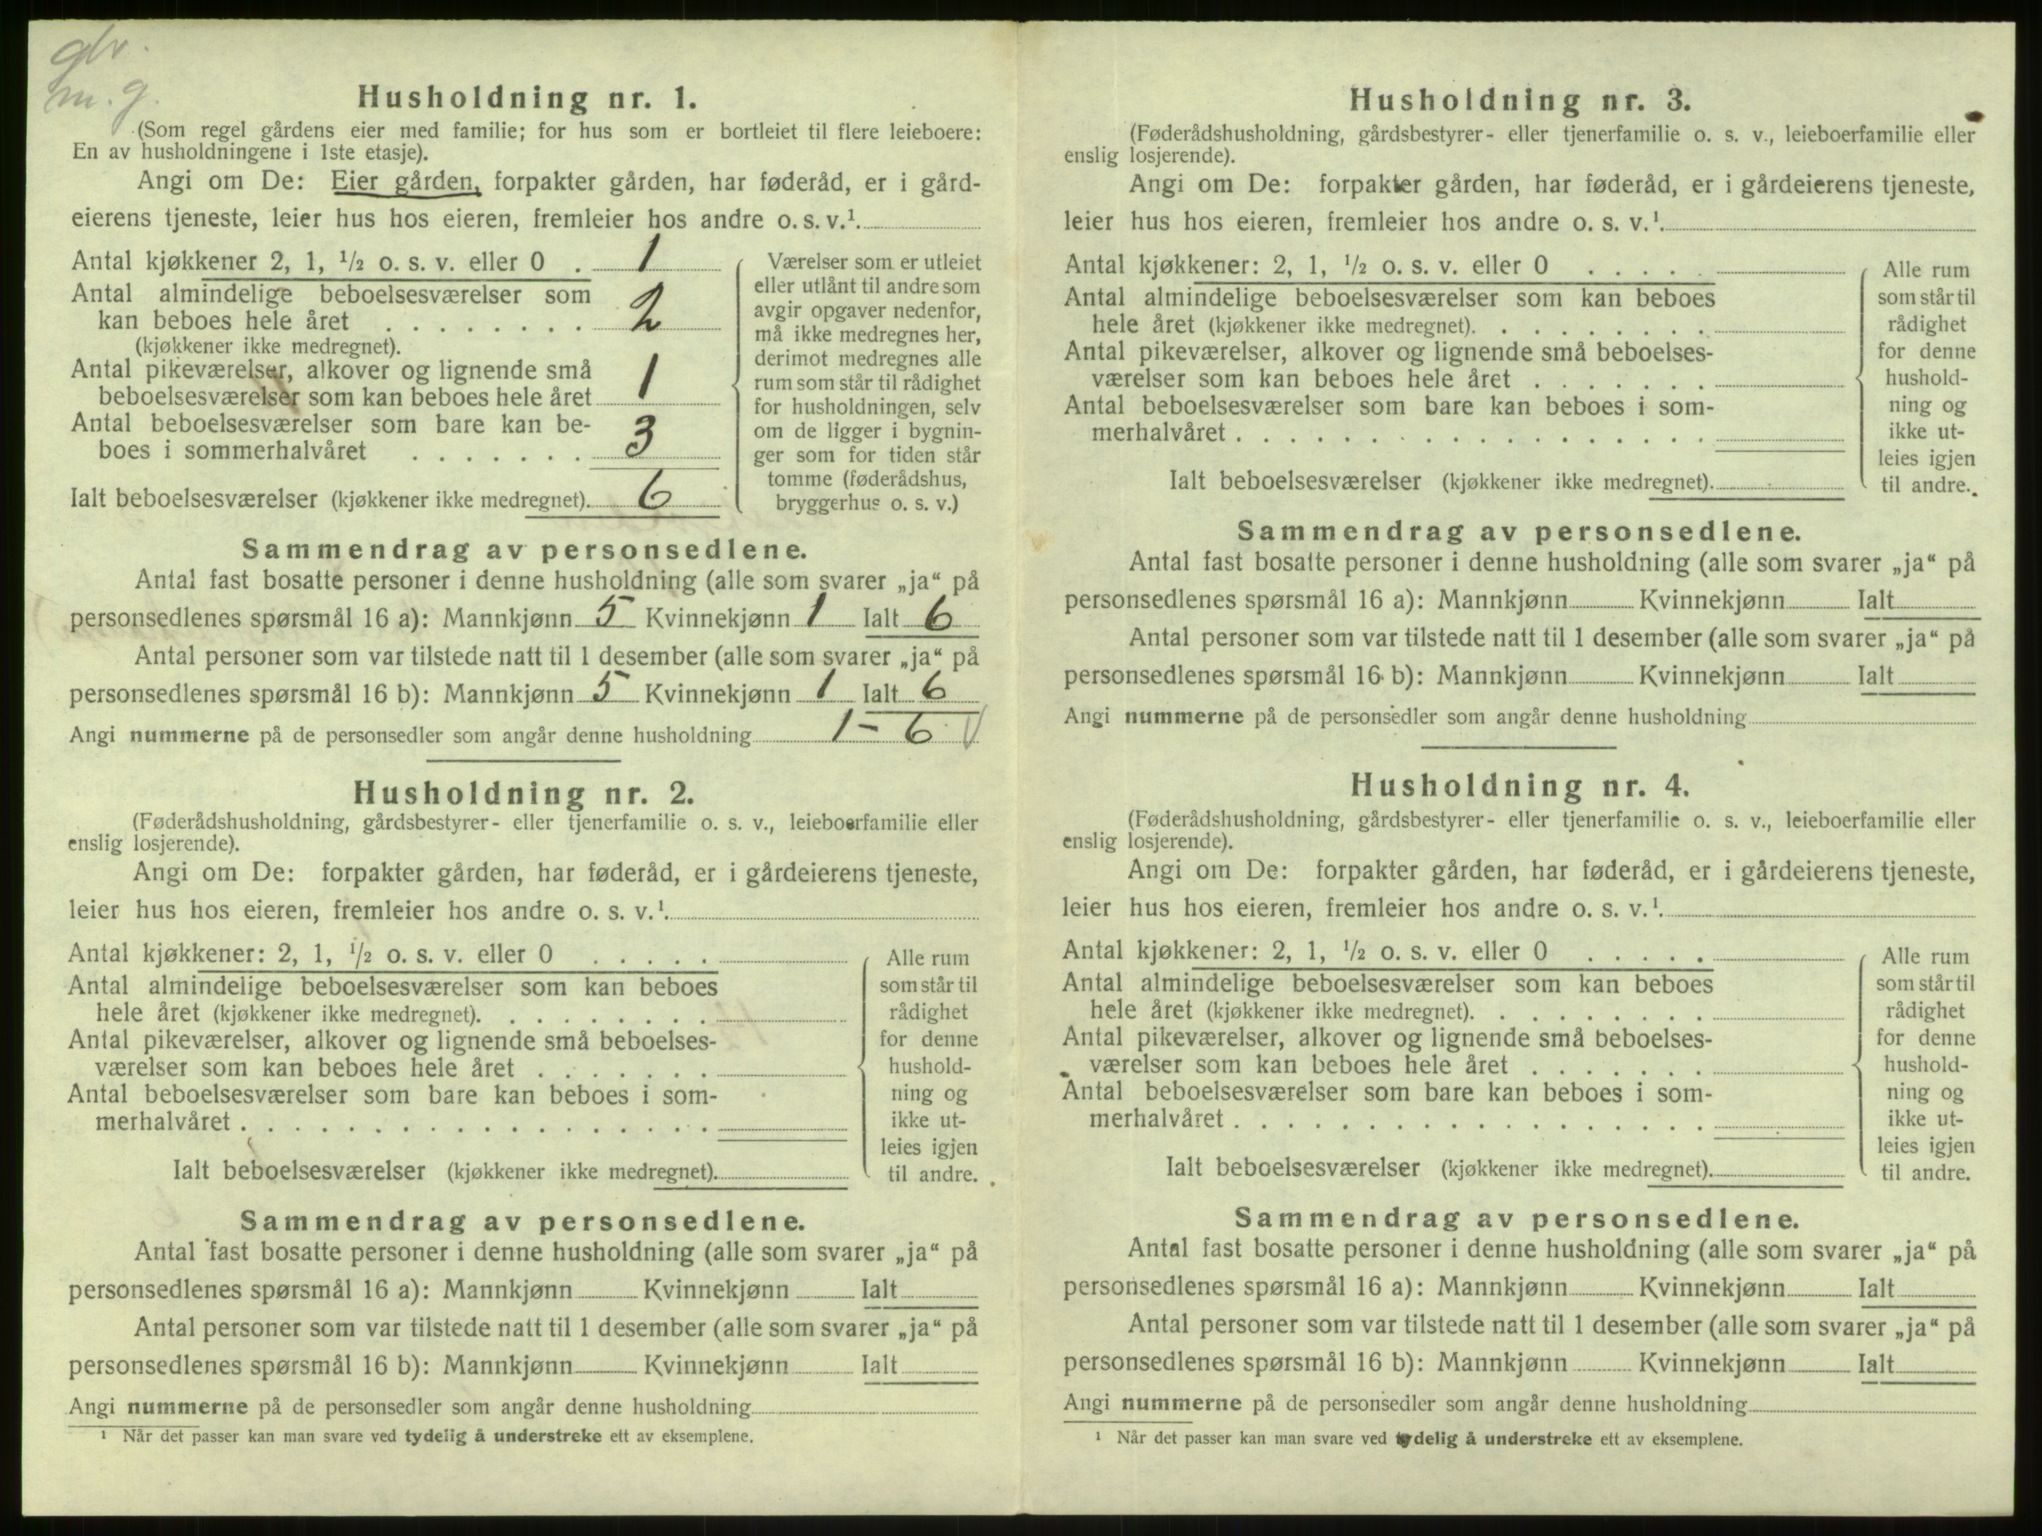 glv.
m. g.
Husholdning nr. 1.
(Som regel gårdens eier med familie; for hus som er bortleiet til flere leieboere:
En av husholdningene i 1ste etasje).
Angi om De: Eier gården, forpakter gården, har føderåd, er i gård-
eierens tjeneste, leier hus hos eieren, fremleier hos andre o. s. v.¹
Antal kjøkkener 2, 1, ½ o. s. v. eller 0 . 1
Antal almindelige beboelsesværelser som
kan beboes hele året . . . . . . . . 2
(kjøkkener ikke medregnet).
Antal pikeværelser, alkover og lignende små
beboelsesværelser som kan beboes hele året 1
Antal beboelsesværelser som bare kan be-
boes i sommerhalvåret . . . . . . . 3
Ialt beboelsesværelser (kjøkkener ikke medregnet). 6
Værelser som er utleiet
eller utlånt til andre som
avgir opgaver nedenfor,
må ikke medregnes her,
derimot medregnes alle
rum som står til rådighet
for husholdningen, selv
om de ligger i bygnin-
ger som for tiden står
tomme (føderådshus,
bryggerhus o. s. v.)
Sammendrag av personsedlene.
Antal fast bosatte personer i denne husholdning (alle som svarer „ja“ på
personsedlenes spørsmål 16 a): Mannkjønn 5 Kvinnekjønn 1 Ialt 6
Antal personer som var tilstede natt til 1 desember (alle som svarer „ja“ på
personsedlenes spørsmål 16 b): Mannkjønn 5 Kvinnekjønn 1 Ialt 6
Angi nummerne på de personsedler som angår denne husholdning 1 - 6 V
Husholdning nr. 2.
(Føderådshusholdning, gårdsbestyrer- eller tjenerfamilie o. s. v., leieboerfamilie eller
enslig losjerende).
Angi om De: forpakter gården, har føderåd, er i gårdeierens tjeneste,
leier hus hos eieren, fremleier hos andre o. s. v.¹
Antal kjøkkener: 2, 1, ½ o. s. v. eller 0 . . . . .
Antal almindelige beboelsesværelser som kan beboes
hele året (kjøkkener ikke medregnet). . . . . . . . .
Antal pikeværelser, alkover og lignende små beboelses-
værelser som kan beboes hele året . . . . . . .
Antal beboelsesværelser som bare kan beboes i som-
merhalvåret . . . . . . . . . . . . . . . . . .
Ialt beboelsesværelser (kjøkkener ikke medregnet).
Alle rum
som står til
rådighet
for denne
hushold-
ning og
ikke ut-
leies igjen
til andre.
Sammendrag av personsedlene.
Antal fast bosatte personer i denne husholdning (alle som svarer „ja“ på
personsedlenes spørsmål 16 a): Mannkjønn Kvinnekjønn Ialt
Antal personer som var tilstede natt til 1 desember (alle som svarer „ja“ på
personsedlenes spørsmål 16 b): Mannkjønn Kvinnekjønn Ialt
Angi nummerne på de personsedler som angår denne husholdning
¹ Når det passer kan man svare ved tydelig å understreke ett av eksemplene.
Husholdning nr. 3.
(Føderådshusholdning, gårdsbestyrer- eller tjenerfamilie o. s. v., leieboerfamilie eller
enslig losjerende).
Angi om De: forpakter gården, har føderåd, er i gårdeierens tjeneste,
leier hus hos eieren, fremleier hos andre o. s. v.¹
Antal kjøkkener: 2, 1, ½ o. s. v. eller 0 . . . . .
Antal almindelige beboelsesværelser som kan beboes
hele året (kjøkkener ikke medregnet). . . . . . . . .
Antal pikeværelser, alkover og lignende små beboelses-
værelser som kan beboes hele året . . . . . . .
Antal beboelsesværelser som bare kan beboes i som-
merhalvåret . . . . . . . . . . . . . . . . . .
Ialt beboelsesværelser (kjøkkener ikke medregnet).
Alle rum
som står til
rådighet
for denne
hushold-
ning og
ikke ut-
leies igjen
til andre.
Sammendrag av personsedlene.
Antal fast bosatte personer i denne husholdning (alle som svarer „ja“ på
personsedlenes spørsmål 16 a): Mannkjønn Kvinnekjønn Ialt
Antal personer som var tilstede natt til 1 desember (alle som svarer „ja“ på
personsedlenes spørsmål 16 b): Mannkjønn Kvinnekjønn Ialt
Angi nummerne på de personsedler som angår denne husholdning
Husholdning nr. 4.
(Føderådshusholdning, gårdsbestyrer- eller tjenerfamilie o. s. v., leieboerfamilie eller
enslig losjerende).
Angi om De: forpakter gården, har føderåd, er i gårdeierens tjeneste,
leier hus hos eieren, fremleier hos andre o. s. v.¹
Antal kjøkkener: 2, 1, ½ o. s. v. eller 0 . . . . .
Antal almindelige beboelsesværelser som kan beboes
hele året (kjøkkener ikke medregnet). . . . . . . . .
Antal pikeværelser, alkover og lignende små beboelses-
værelser som kan beboes hele året . . . . . . .
Antal beboelsesværelser som bare kan beboes i som-
merhalvåret . . . . . . . . . . . . . . . . . .
Ialt beboelsesværelser (kjøkkener ikke medregnet).
Alle rum
som står til
rådighet
for denne
hushold-
ning og
ikke ut-
leies igjen
til andre.
Sammendrag av personsedlene.
Antal fast bosatte personer i denne husholdning (alle som svarer „ja“ på
personsedlenes spørsmål 16 a): Mannkjønn Kvinnekjønn Ialt
Antal personer som var tilstede natt til 1 desember (alle som svarer „ja“ på
personsedlenes spørsmål 16 b): Mannkjønn Kvinnekjønn Ialt
Angi nummerne på de personsedler som angår denne husholdning
¹ Når det passer kan man svare ved tydelig å understreke ett av eksemplene.